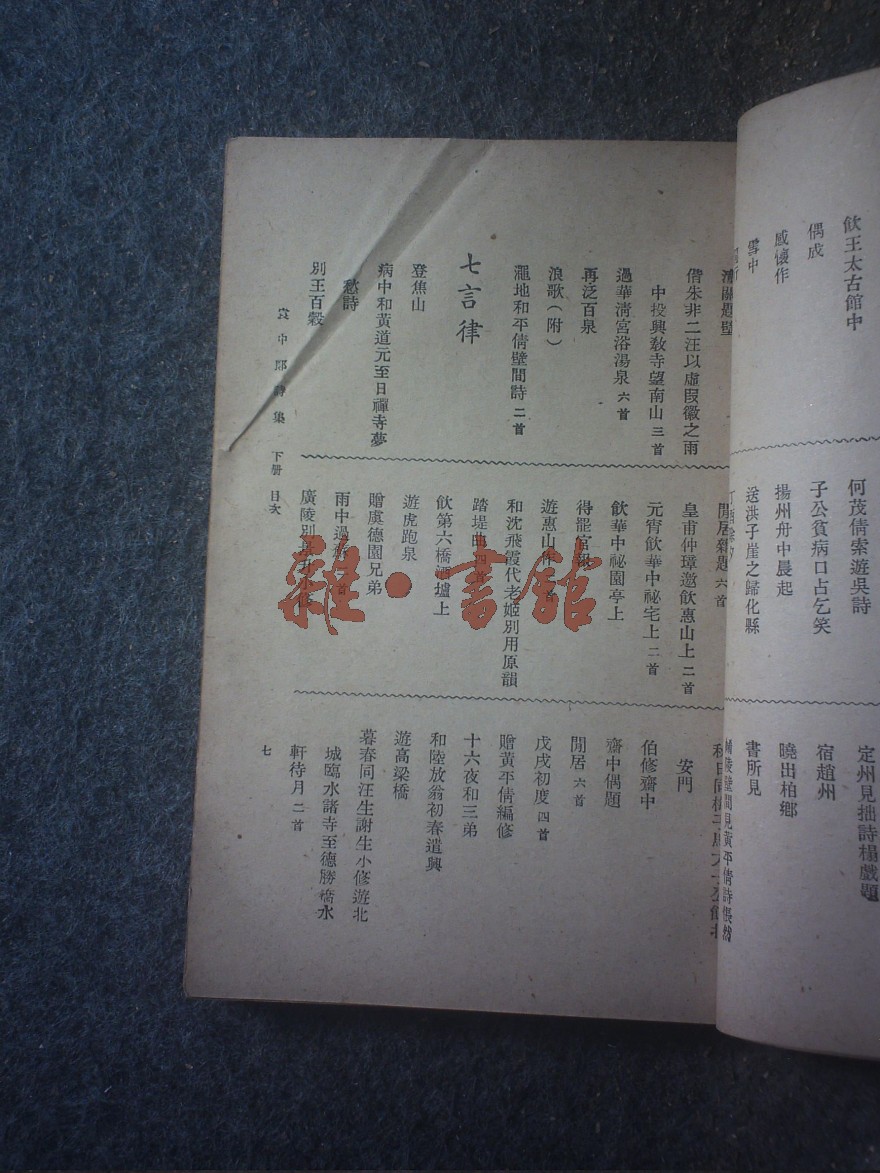 飲王太古館中
偶成
感懷作
雪中
何茂倩索遊吳詩
子公貧病口占乞笑
揚州舟中晨起
送洪子崖之歸化縣
定州見拙詩榻戲題
宿趙州
曉出柏鄉
書所見
偕朱非二汪以虛叚徽之雨
中投興敎寺望南山 三首
過華淸宮浴湯泉 六首
再泛百泉
浪歌(附)
澠地和平倩壁間詩 二首
七言律
登焦山
病中和黃道元至日禪寺夢
愁詩
別王百穀
皇甫仲璋邀飮惠山上 二首
元宵飮華中祕宅上 二首
飮華中祕園亭上
得罷官報
遊惠山
和沈飛霞代老姬別用原韻
踏堤曲 四首
飮第六橋酒壚上
遊虎跑泉
贈虞德園兄弟
雨中過
廣陵別
安門
伯修齋中
齋中偶題
閒居 六首
戊戌初度 四首
贈黃平倩編修
十六夜和三弟
和陸放翁初春遣興
遊高梁橋
暮春同汪生謝生小修遊北
城臨水諸寺至德勝橋水
軒待月 二首
袁中郎詩集 下册 目次
七
雜·書館